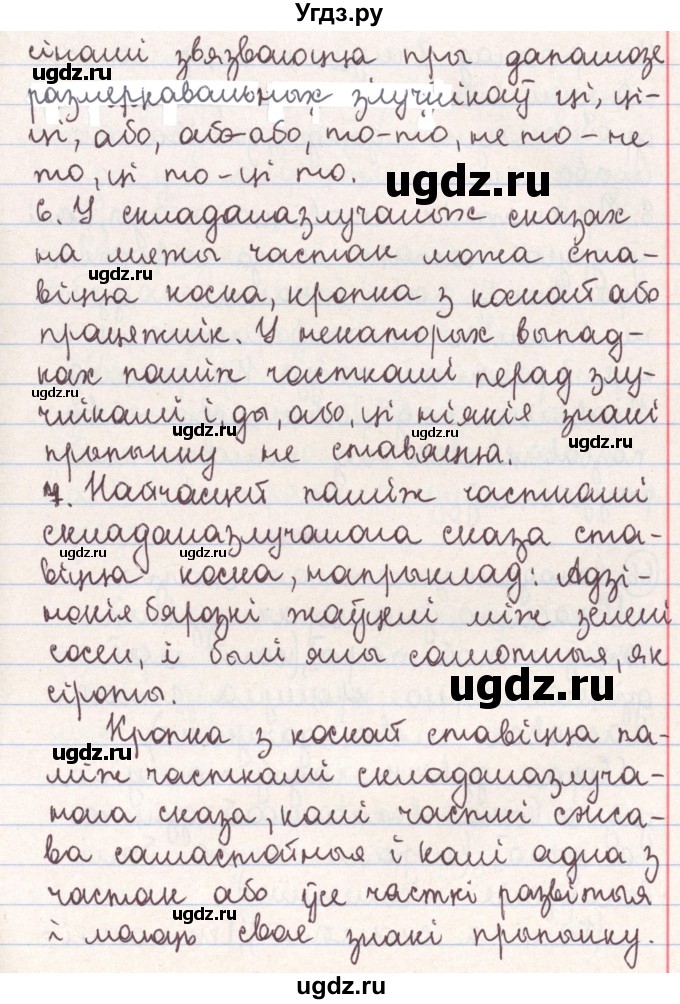 Угдз.ру
сінамі звязваюцца пры дапамозе
размеркавальных злучнікаў ці, ці-
ці, або, або-або, то-то, не то - не
то, ці то - ці то.
6. У складаназлучаных сказах
на мяжы частак можа ста-
віцца коска, кропка з коскай або
працяжнік. У некаторых выпад-
ках паміж часткамі перад злу-
чнікамі і, ды, або, ці ніякія знакі
прыпынку не ставяцца.
7. Найчасцей паміж часткамі
складаназлучанага сказа ста-
віцца коска, напрыклад: Адзі-
нокія бярозкі жаўцелі між зелені
сосен, і былі яны самотныя, як
сіроты.
Кропка з коскай ставіцца па-
між часткамі складаназлуча-
нага сказа, калі часткі сэнса-
ва самастойныя і калі адна з
частак або ўсе часткі развітыя
і маюць свае знакі прыпынку.
Угдз.ру
ugdz.ru